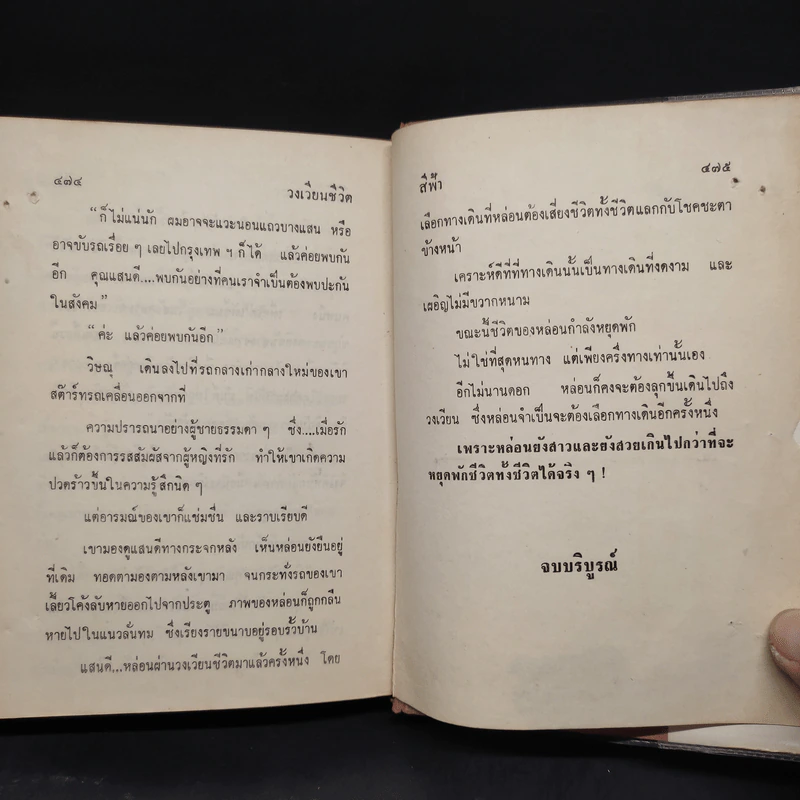 ๔๗๔
วงเวียนชีวิต
“ก็ไม่แน่นัก ผมอาจจะแวะนอนแถวบางแสน หรือ
อาจขับรถเรื่อย ๆ เลยไปกรุงเทพ ฯ ก็ได้ แล้วค่อยพบกัน
อีก คุณแสนดี....พบกันอย่างที่คนเราจำเป็นต้องพบปะกัน
ในสังคม”
“ค่ะ แล้วค่อยพบกันอีก”
วิษณุ เดินลงไปที่รถกลางเก่ากลางใหม่ของเขา
สต๊าร์ทรถเคลื่อนออกจากที่
ความปรารถนาอย่างผู้ชายธรรมดา ๆ ซึ่ง....เมื่อรัก
แล้วก็ต้องการรสสัมผัสจากผู้หญิงที่รัก ทำให้เขาเกิดความ
ปวดร้าวขึ้นในความรู้สึกนิด ๆ
แต่อารมณ์ของเขาก็แช่มชื่น และราบเรียบดี
เขามองดูแสนดีทางกระจกหลัง เห็นหล่อนยังยืนอยู่
ที่เดิม ทอดตามองตามหลังเขามา จนกระทั่งรถของเขา
เลี้ยวโค้งลับหายออกไปจากประตู ภาพของหล่อนก็ถูกกลืน
หายไปในแนวลั่นทม ซึ่งเรียงรายขนาบอยู่รอบรั้วบ้าน
แสนดี...หล่อนผ่านวงเวียนชีวิตมาแล้วครั้งหนึ่ง โดย
สีฟ้า
๔๗๕
เลือกทางเดินที่หล่อนต้องเสี่ยงชีวิตทั้งชีวิตแลกกับโชคชะตา
ข้างหน้า
เคราะห์ดีที่ที่ทางเดินนั้นเป็นทางเดินที่งดงาม และ
เผอิญไม่มีขวากหนาม
ขณะนี้ชีวิตของหล่อนกำลังหยุดพัก
ไม่ใช่ที่สุดหนทาง แต่เพียงครึ่งทางเท่านั้นเอง
อีกไม่นานดอก หล่อนก็คงจะต้องลุกขึ้นเดินไปถึง
วงเวียน ซึ่งหล่อนจำเป็นจะต้องเลือกทางเดินอีกครั้งหนึ่ง
เพราะหล่อนยังสาวและยังสวยเกินไปกว่าที่จะ
หยุดพักชีวิตทั้งชีวิตได้จริง ๆ !
จบบริบูรณ์